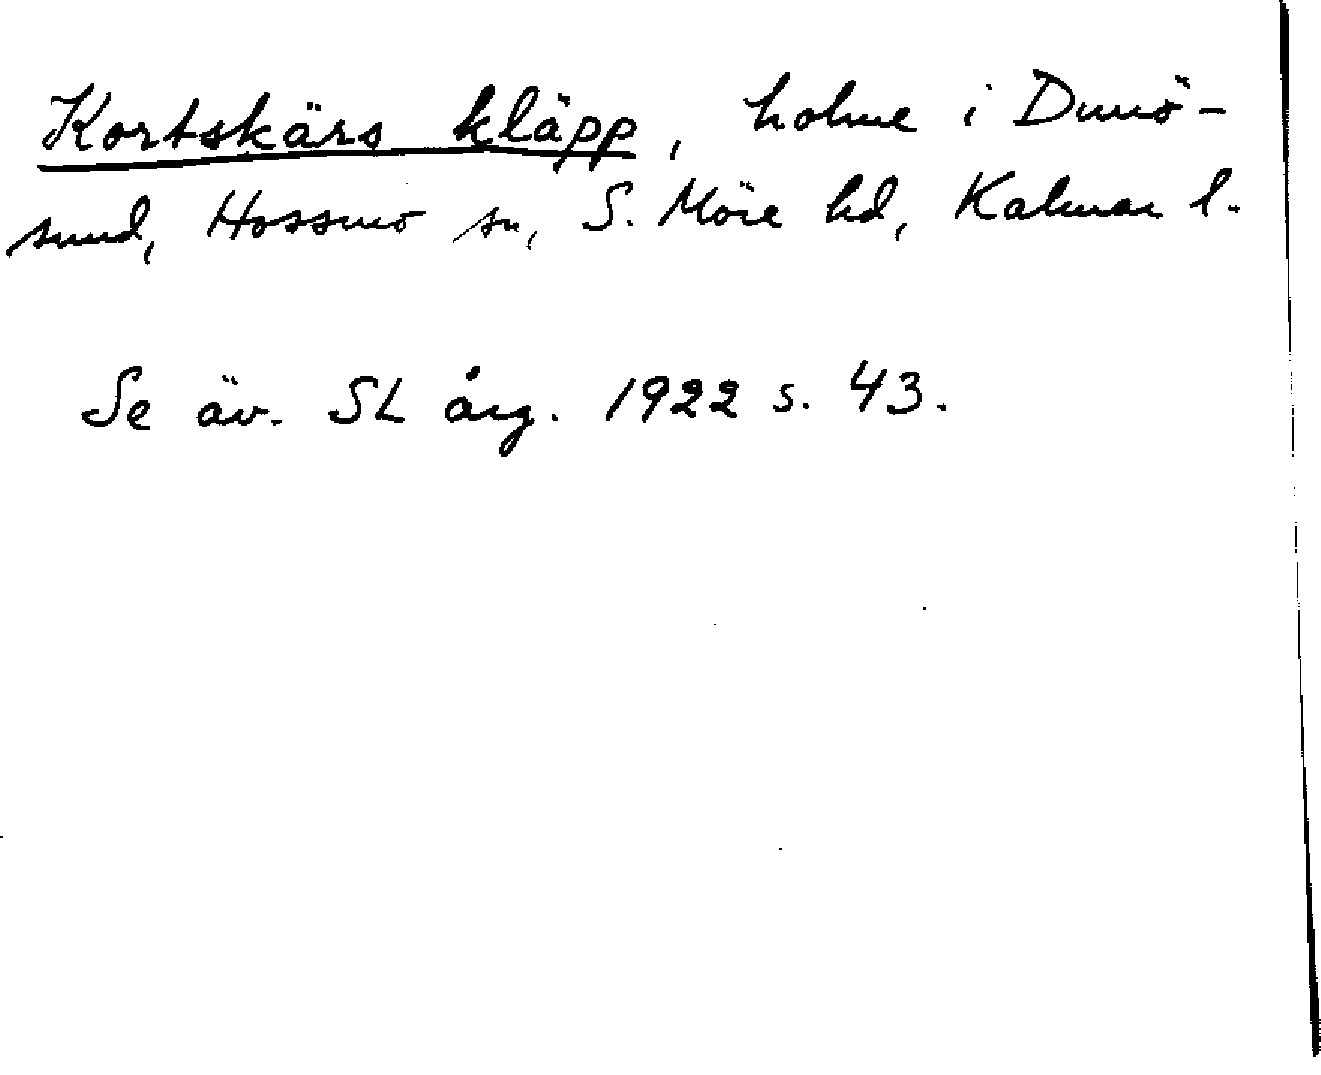 Kortskärs kläpp, holme i Dunö-
sund, Hossmo sn, S. Möre hd, Kalmar l.
Se äv. SL årg. 1922 s. 43.